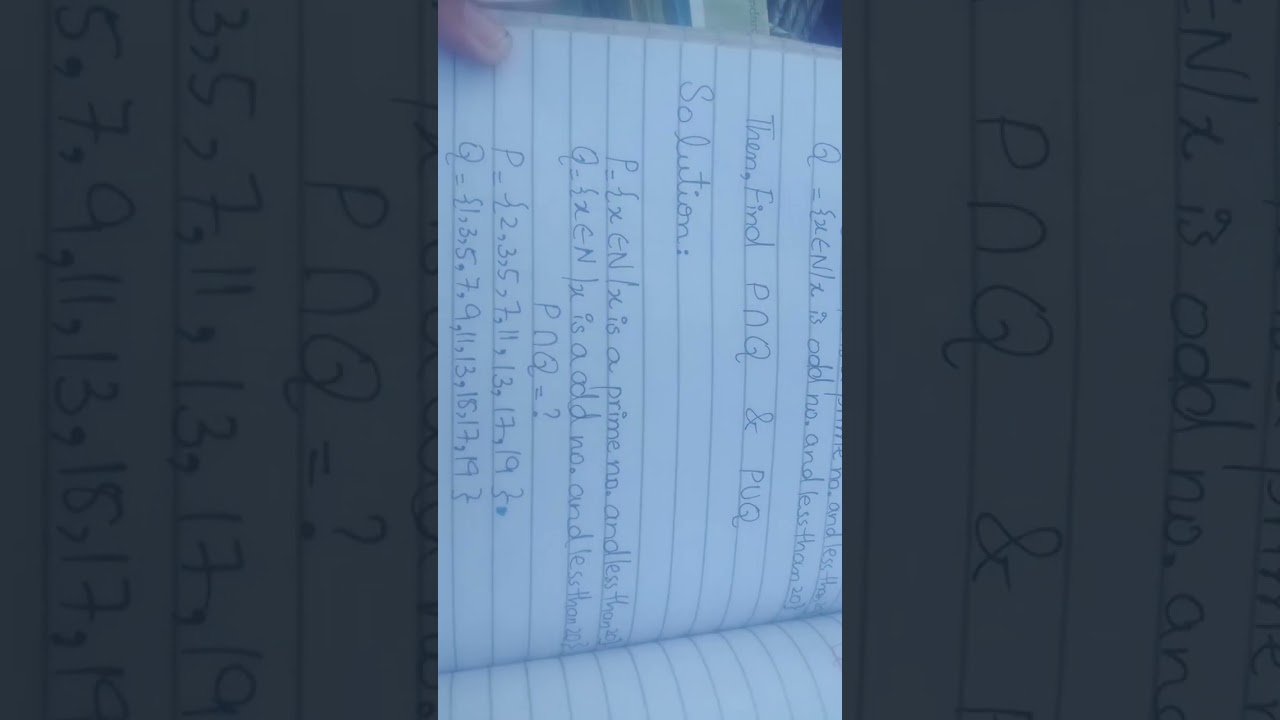 prime no. and less than
Q = {x∈N/x is odd no. and less than 20}
Then, Find P∩Q & P∪Q
Solution:
P = {x∈N/x is a prime no. and less than 20}
Q = {x∈N/x is a odd no. and less than 20}
P∩Q = ?
P = {2,3,5,7,11,13,17,19}.
Q = {1,3,5,7,9,11,13,15,17,19}